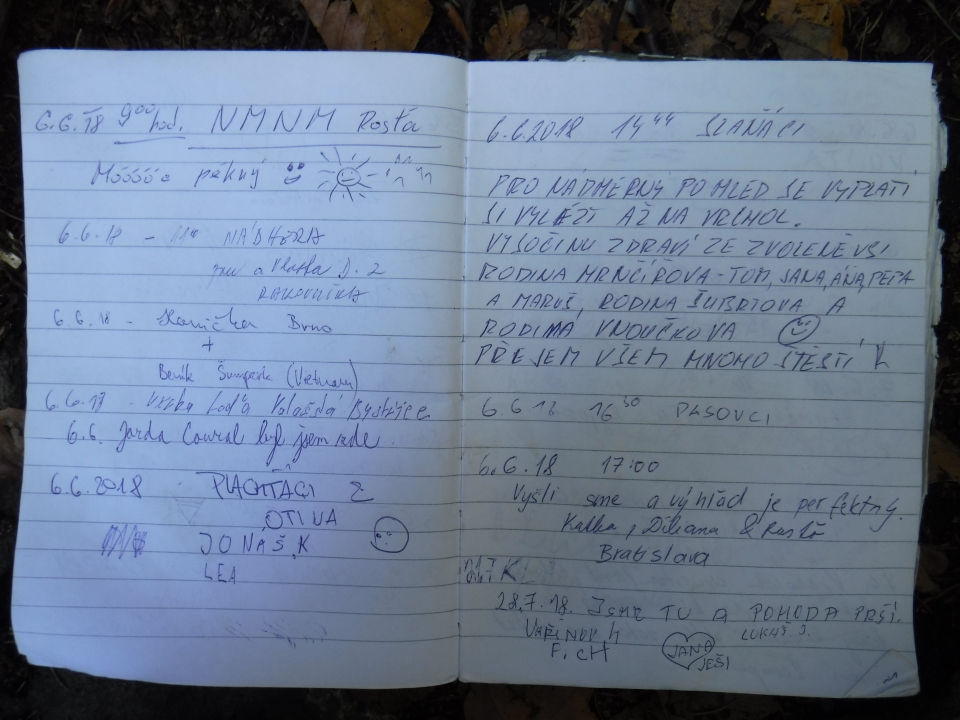 6.6.18 9⁰⁰ hod. NMNM Rosťa
Móóóóo pěkný
6.6.18 - 11⁰⁰ NÁDHERA
a Vlasta D. z
RAKOVNÍKA
6.6.18 - Hanička Brno
+
Šumperk (Vietnam)
6.6.18 - Bystřice
6.6. Jarda Coural byl jsem zde.
6.6.2018 PLACHŤÁCI Z
OTÍNA
JONÁŠ, K
LEA
6.6.2018 14⁴⁴ SLAŇÁCI
PRO NÁDHERNÝ POHLED SE VYPLATÍ
SI VYLÉZT AŽ NA VRCHOL.
VYSOČINU ZDRAVÍ ZE ZVOLENĚVSI
RODINA HRNČÍŘOVA - TOM, JANA, ÁŇA, PEPA
A MARUŠ, RODINA ŠUBRTOVA A
RODINA VNOUČKOVA
PŘEJEM VŠEM MNOHO ŠTĚSTÍ
6.6.18 16³⁰
6.6.18 17:00
Vyšli sme a výhľad je perfektný.
Katka, & Rasťo
Bratislava
28.7.18. JSME TU A POHODA PRŠÍ.
LUKÁŠ J.
F. CH
JANA
JEŠI